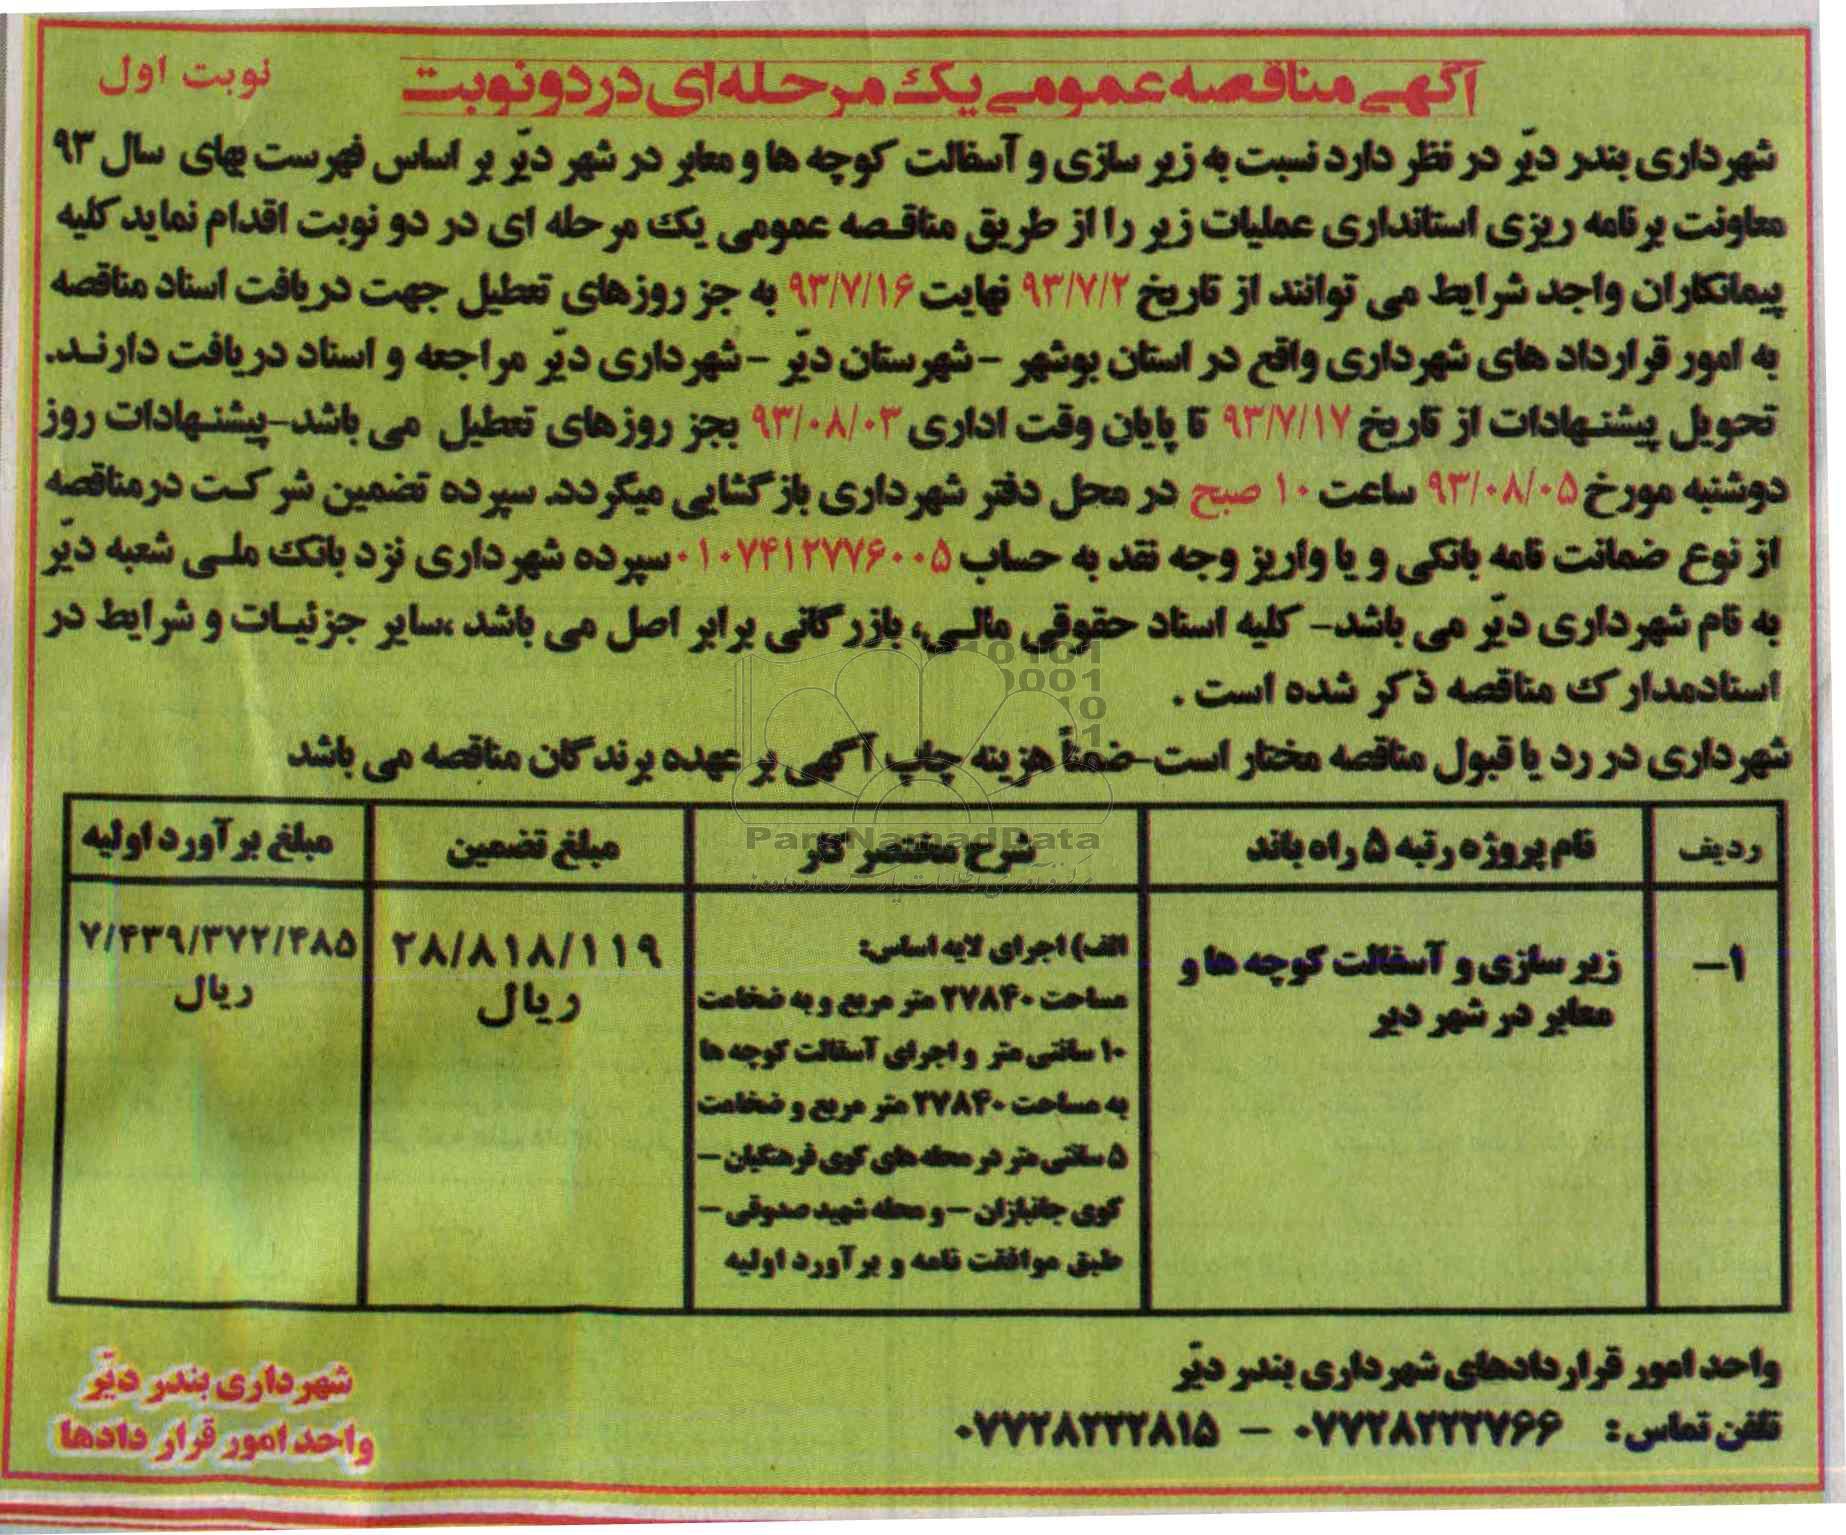 آگهی مناقصه عمومی یک مرحله ای در دو نوبت
نوبت اول
شهرداری بندر دیّر در نظر دارد نسبت به زیر سازی و آسفالت کوچه ها و معابر در شهر دیّر بر اساس فهرست بهای سال ۹۳
معاونت برنامه ریزی استانداری عملیات زیر را از طریق مناقصه عمومی یک مرحله ای در دو نوبت اقدام نماید کلیه
پیمانکاران واجد شرایط می توانند از تاریخ ۹۳/۷/۲ نهایت ۹۳/۷/۱۶ به جز روزهای تعطیل جهت دریافت اسناد مناقصه
به امور قرارداد های شهرداری واقع در استان بوشهر - شهرستان دیّر - شهرداری دیّر مراجعه و اسناد دریافت دارند.
تحویل پیشنهادات از تاریخ ۹۳/۷/۱۷ تا پایان وقت اداری ۹۳/۰۸/۰۳ بجز روزهای تعطیل می باشد-پیشنهادات روز
دوشنبه مورخ ۹۳/۰۸/۰۵ ساعت ۱۰ صبح در محل دفتر شهرداری باز گشایی میگردد. سپرده تضمین شرکت درمناقصه
از نوع ضمانت نامه بانکی و یا واریز وجه نقد به حساب ۰۱۰۷۴۱۲۷۷۶۰۰۵ سپرده شهرداری نزد بانک ملی شعبه دیّر
به نام شهرداری دیّر می باشد- کلیه اسناد حقوقی مالی، بازرگانی برابر اصل می باشد ،سایر جزئیات و شرایط در
اسنادمدارک مناقصه ذکر شده است .
شهرداری در رد یا قبول مناقصه مختار است-ضمناً هزینه چاپ آگهی بر عهده برندگان مناقصه می باشد
ردیف
نام پروژه رتبه ۵ راه باند
شرح مختصر کار
مبلغ تضمین
مبلغ برآورد اولیه
۱-
زیر سازی و آسفالت کوچه ها و
معابر در شهر دیر
الف) اجرای لایه اساس:
مساحت ۲۷۸۴۰ متر مربع و به ضخامت
۱۰ سانتی متر و اجرای آسفالت کوچه ها
به مساحت ۲۷۸۴۰ متر مربع و ضخامت
۵ سانتی متر در محله های کوی فرهنگیان -
کوی جانبازان - و محله شهید صدوقی -
طبق موافقت نامه و برآورد اولیه
۲۸/۸۱۸/۱۱۹
ریال
۷/۴۳۹/۳۷۲/۴۸۵
ریال
واحد امور قراردادهای شهرداری بندر دیّر
تلفن تماس: ۰۷۷۲۸۲۲۲۷۶۶ - ۰۷۷۲۸۲۲۲۸۱۵
شهرداری بندر دیّر
واحد امور قرار دادها
ParsNamadData